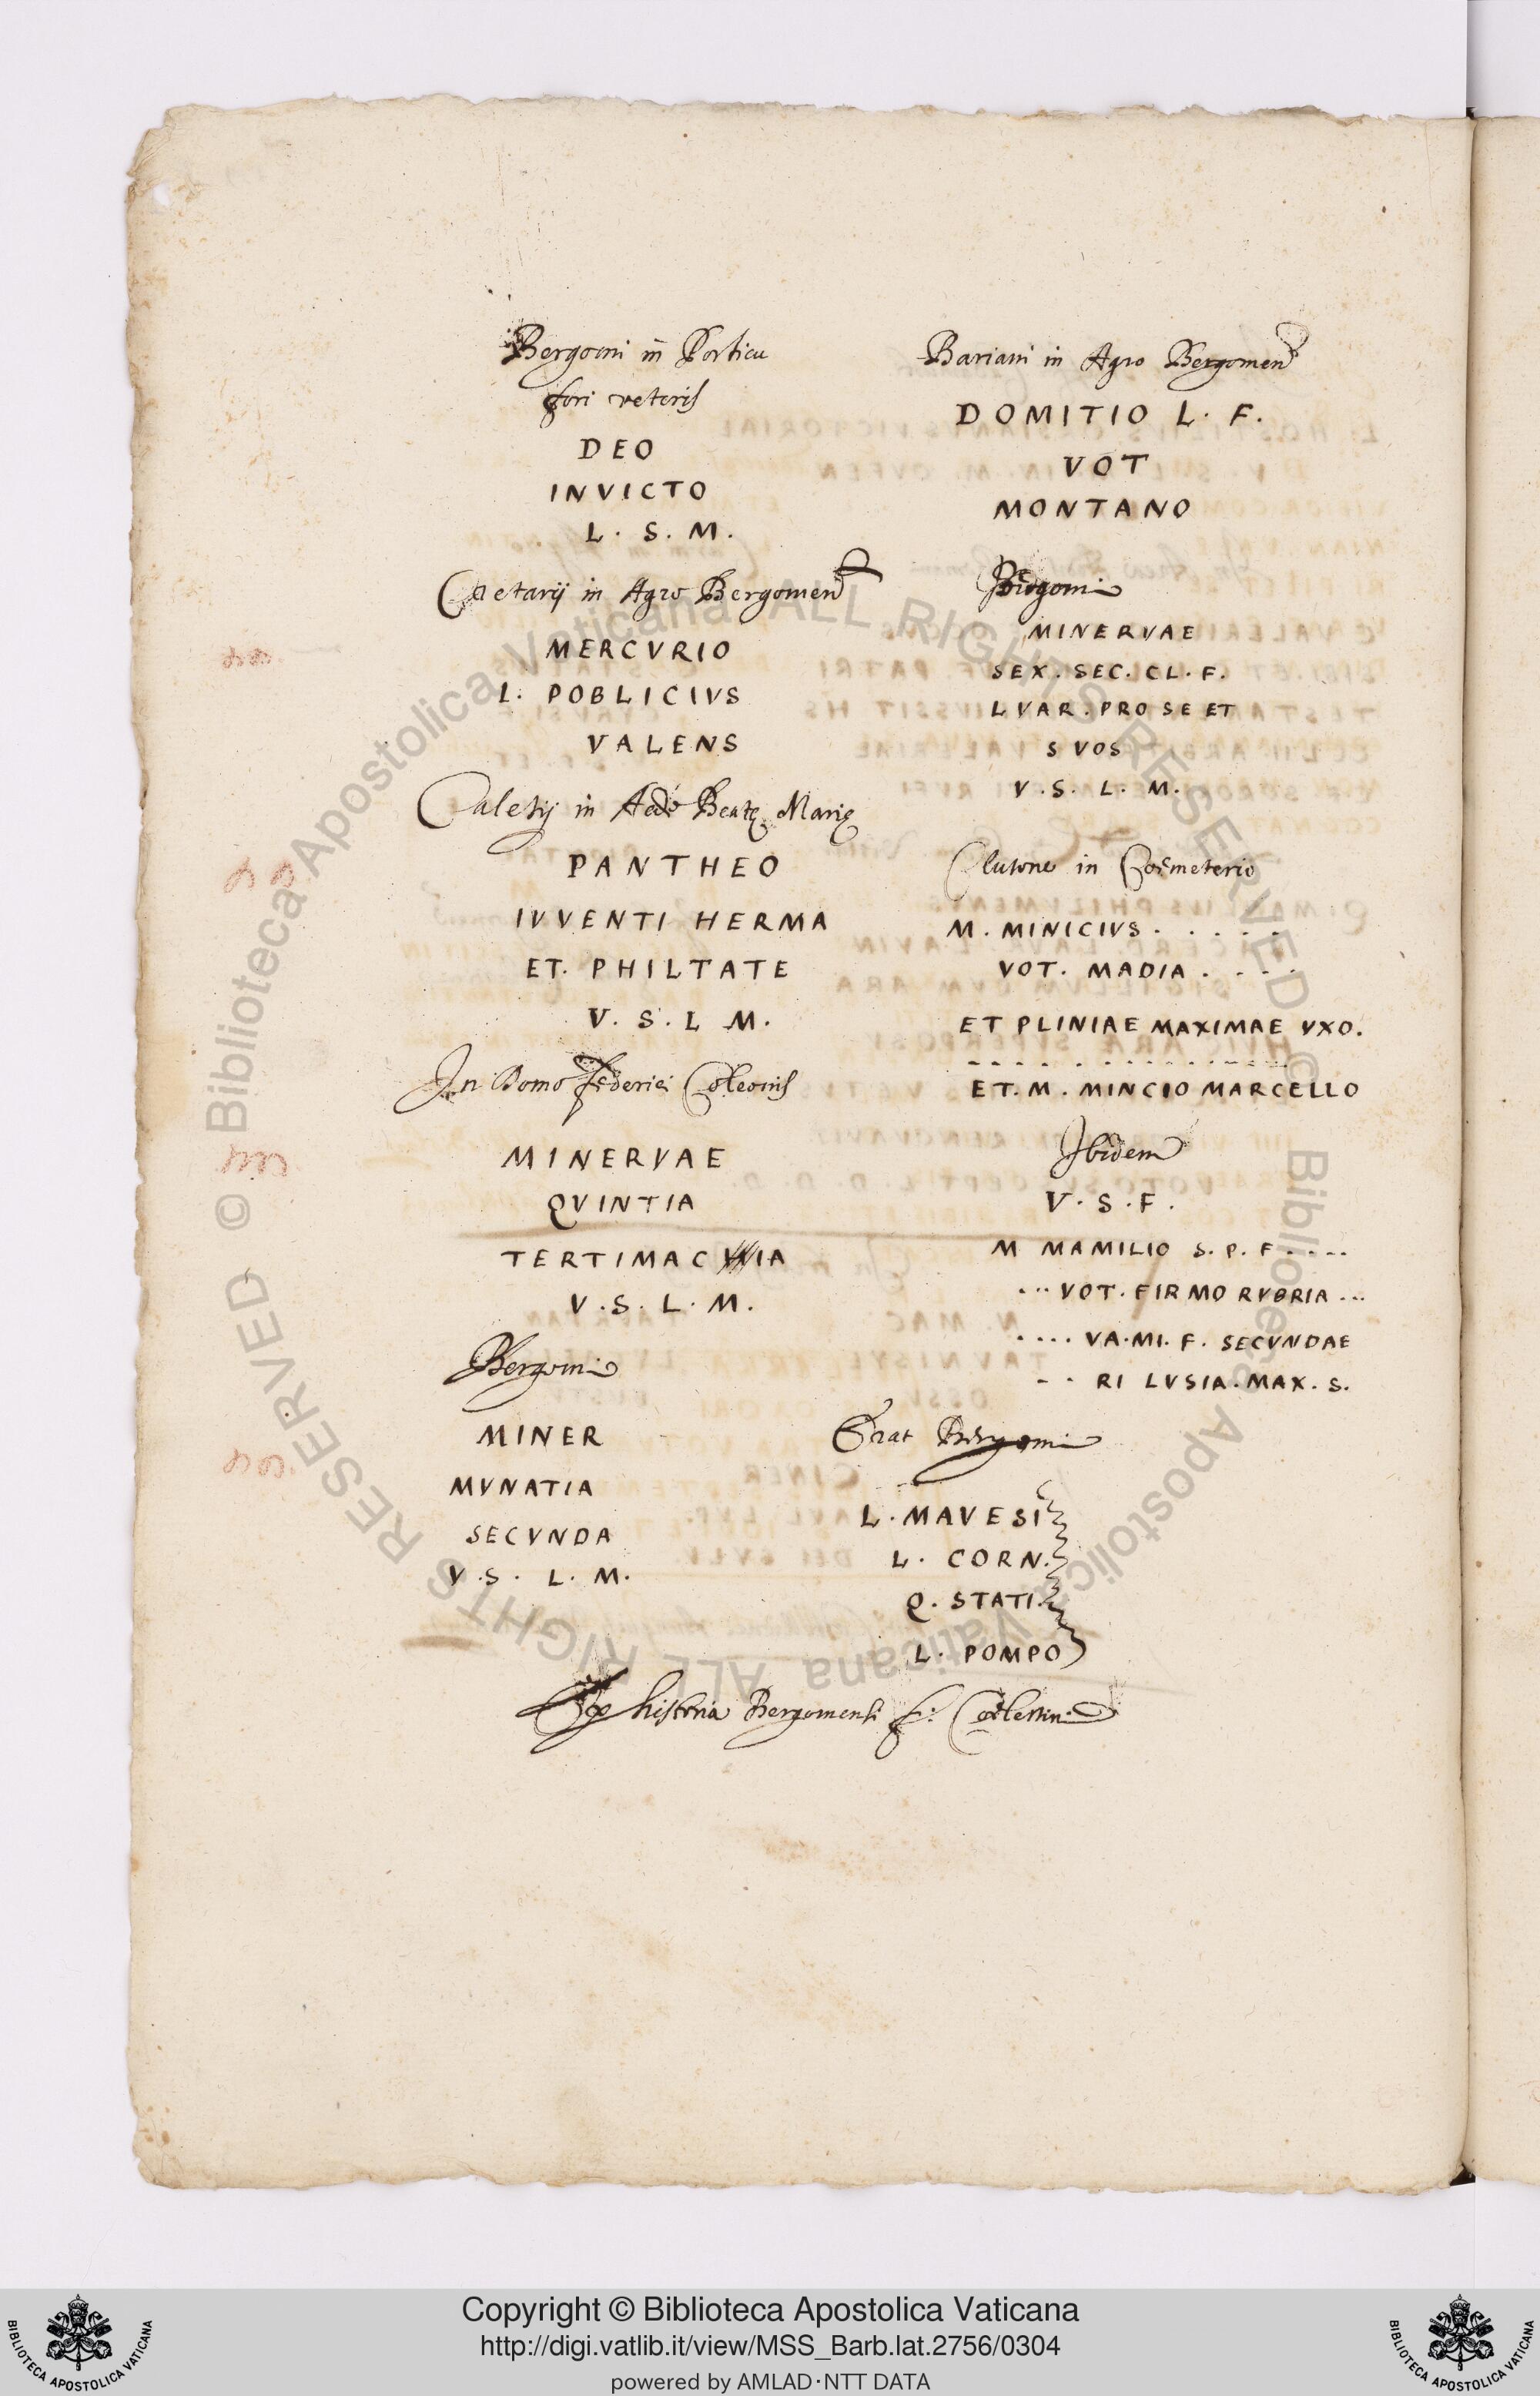 Bergomi in Porticu
fori veteris
DEO
INVICTO
L. S. M.
Caetarij in Agro Bergomen
MERCVRIO
L. POBLICIVS
VALENS
Caletij in Aede Beatę Marię
PANTHEO
IVVENTI HERMA
ET. PHILTATE
V. S. L M.
In Domo Federici Coleonis
MINERVAE
QVINTIA
TERTIMAC IA
V. S. L. M.
Bergomi
MINER
MVNATIA
SECVNDA
V. S. L. M.
Bariani in Agro Bergomen
DOMITIO L. F.
VOT
MONTANO
Bergomi
MINERVAE
SEX. SEC. CL. F.
LVAR. PRO SE ET
SVOS
V. S. L. M.
Clutone in Coemeterio
M. MINICIVS. . . . .
VOT. MADIA . . . .
ET PLINIAE MAXIMAE VXO.
- - - - - - - - - - - - - -
ET. M. MINCIO MARCELLO
Ibidem
V. S. F.
M MAMILIO S. P. F. . . .
... VOT. FIRMO RVBRIA ...
.... VA. MI. F. SECVNDAE
- - RI LVSIA. MAX. S.
Erat Bergomi
L. MAVESI
L. CORN.
Q. STATI.
L. POMPO
Ex historia Bergomensi f. Coelestini
Copyright © Biblioteca Apostolica Vaticana
http://digi.vatlib.it/view/MSS_Barb.lat.2756/0304
powered by AMLAD·NTT DATA
BIBLIOTECA APOSTOLICA VATICANA
BIBLIOTECA APOSTOLICA VATICANA
© Biblioteca Apostolica Vaticana ALL RIGHTS RESERVED
© Biblioteca Apostolica Vaticana ALL RIGHTS RESERVED